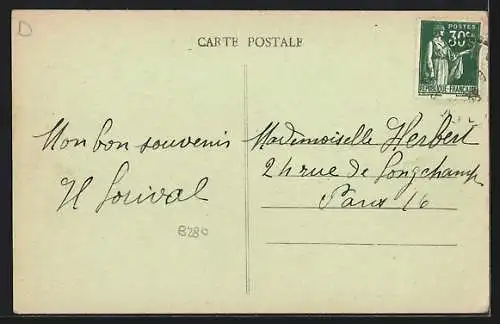 D
CARTE POSTALE
POSTES
30c
REPUBLIQUE FRANÇAISE
Mon bon souvenir
H
Mademoiselle Herbert
24 rue de Longchamp
Paris 16
B280